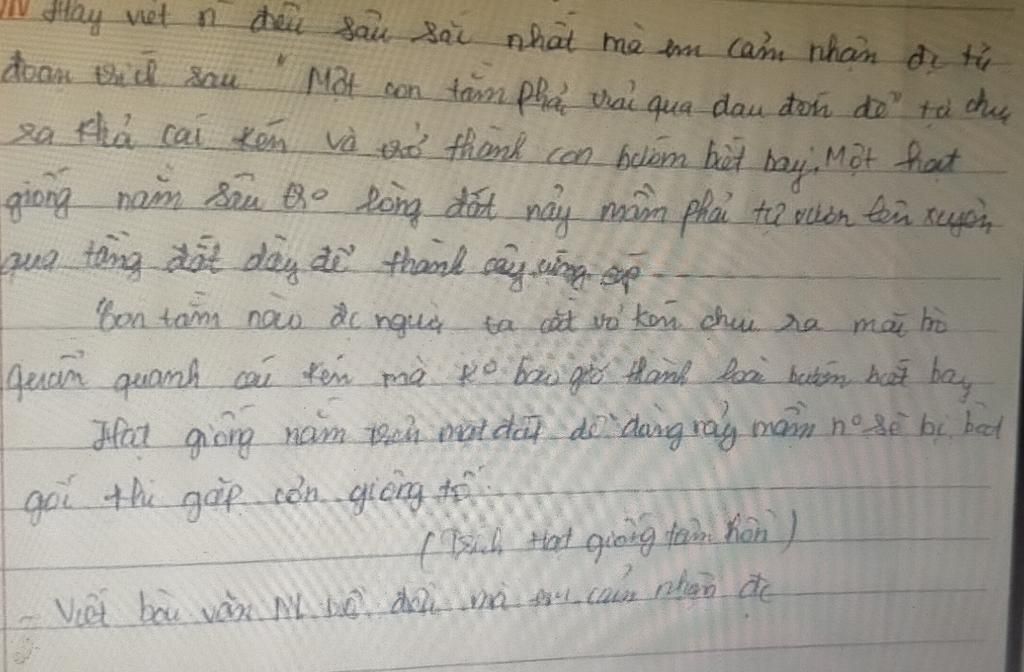 Hãy viết n điều sâu sắc nhất mà em cảm nhận đc từ
đoạn trích sau "Một con tằm phải trải qua đau đớn để tự chui
ra khỏi cái kén và trở thành con bướm biết bay. Một hạt
giống nằm sâu tro lòng đất nảy mầm phải tự vươn lên xuyên
qua tầng đất dày để thành cây cứng cáp
Con tằm nào đc người ta cắt vỏ kén chui ra mãi bò
quẩn quanh cái kén mà ko bao giờ thành loài bướm biết bay
Hạt giống nằm trên mặt đất dễ dàng nảy mầm nó sẽ bị bật
gốc khi gặp cơn giông tố
(Trích Hạt giống tâm hồn)
- Viết bài văn NL về điều mà em cảm nhận đc